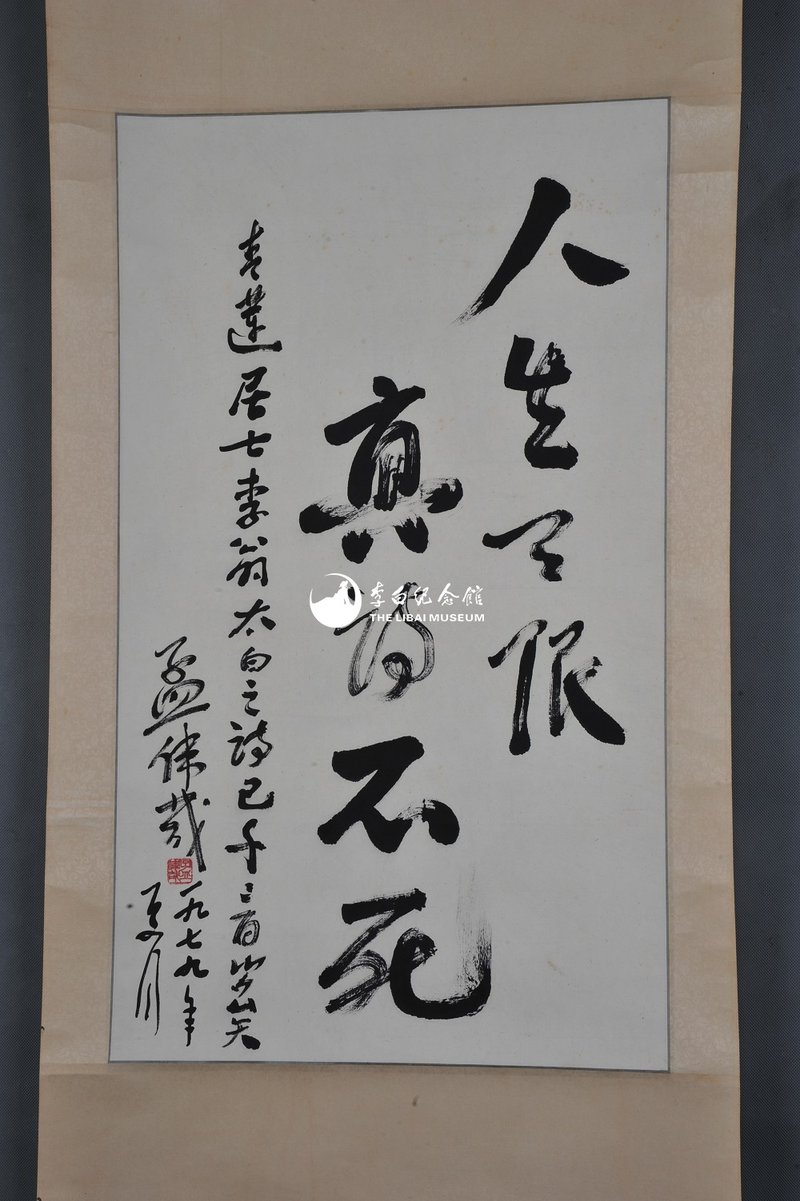 人生有限
真詩不死
青蓮居士李翁太白之詩已千百歲矣
孟偉哉
一九七九年
夏月
李白纪念館
THE LIBAI MUSEUM